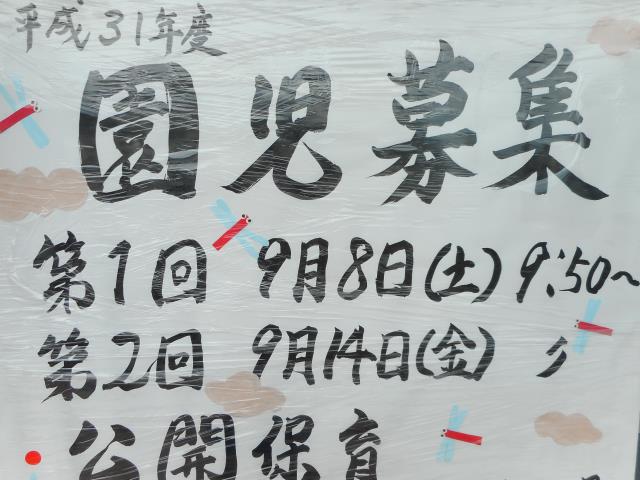 平成31年度
園児募集
第1回 9月8日(土) 9:50~
第2回 9月14日(金) 〃
公開保育